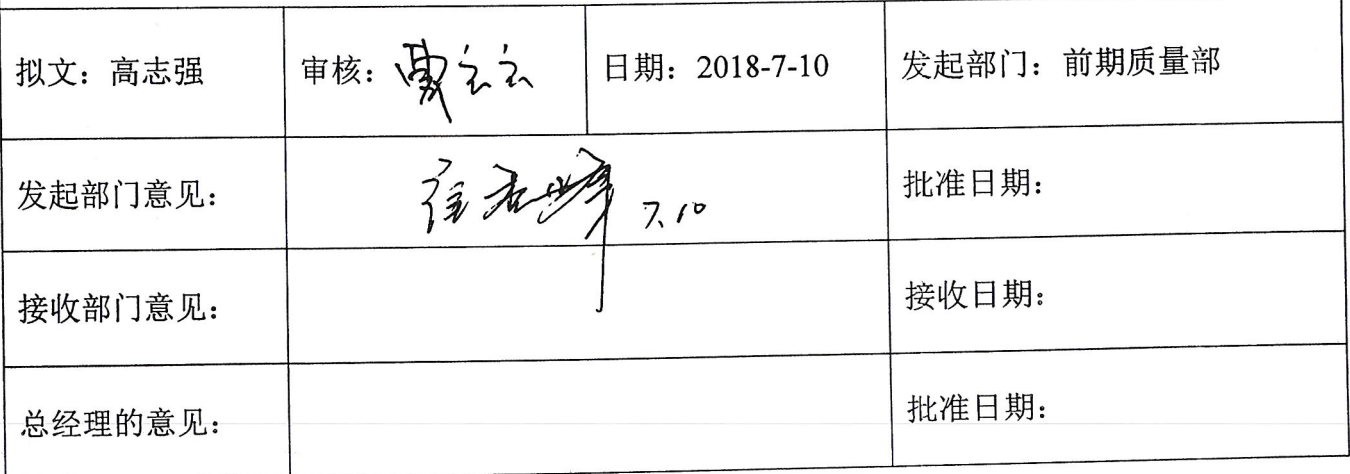 拟文：高志强
审核：
日期：2018-7-10
发起部门：前期质量部
发起部门意见：
7.10
批准日期：
接收部门意见：
接收日期：
总经理的意见：
批准日期：